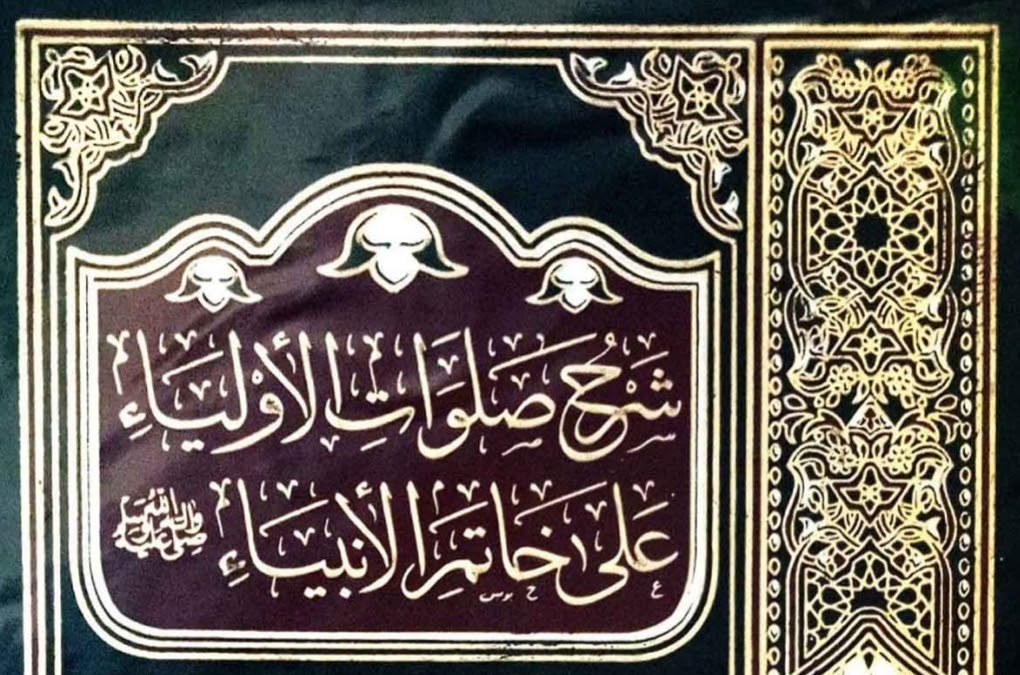 شَرْحُ صَلَوَاتِ الأَوْلِيَاءِ
عَلَى خَاتَمِ الأَنْبِيَاءِ ﷺ